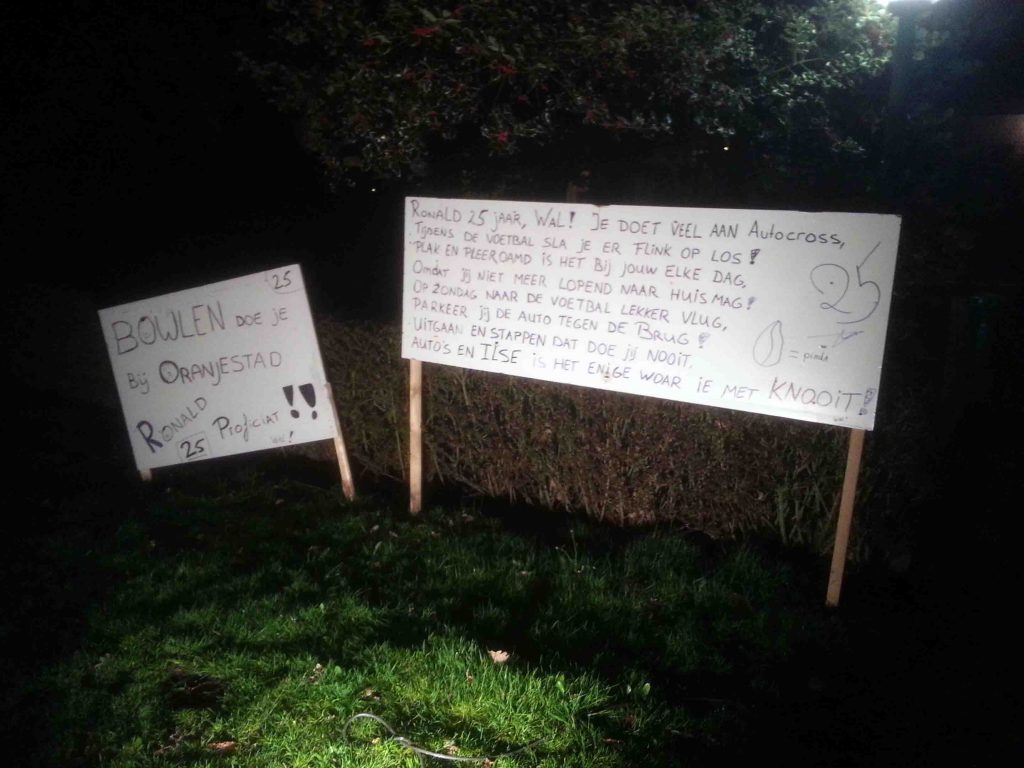 25
BOWLEN DOE JE
Bij ORANJESTAD
RONALD
25 Proficiat !!
WAL!
RONALD 25 JAAR, WAL! JE DOET VEEL AAN Autocross,
TIJDENS DE VOETBAL SLA JE ER FLINK OP LOS!
PLAK EN PLEEROAMD IS HET Bij JOUW ELKE DAG,
OMDAT jij NIET MEER LOPEND NAAR HUIS MAG!
OP ZONDAG NAAR DE VOETBAL LEKKER VLUG,
PARKEER jij DE AUTO TEGEN DE BRUG!
UITGAAN EN STAPPEN DAT DOE jij NOOIT,
AUTO'S EN ILSE IS HET ENIGE WOAR IE MET KNOOIT!!
25
= pinda
WAL!